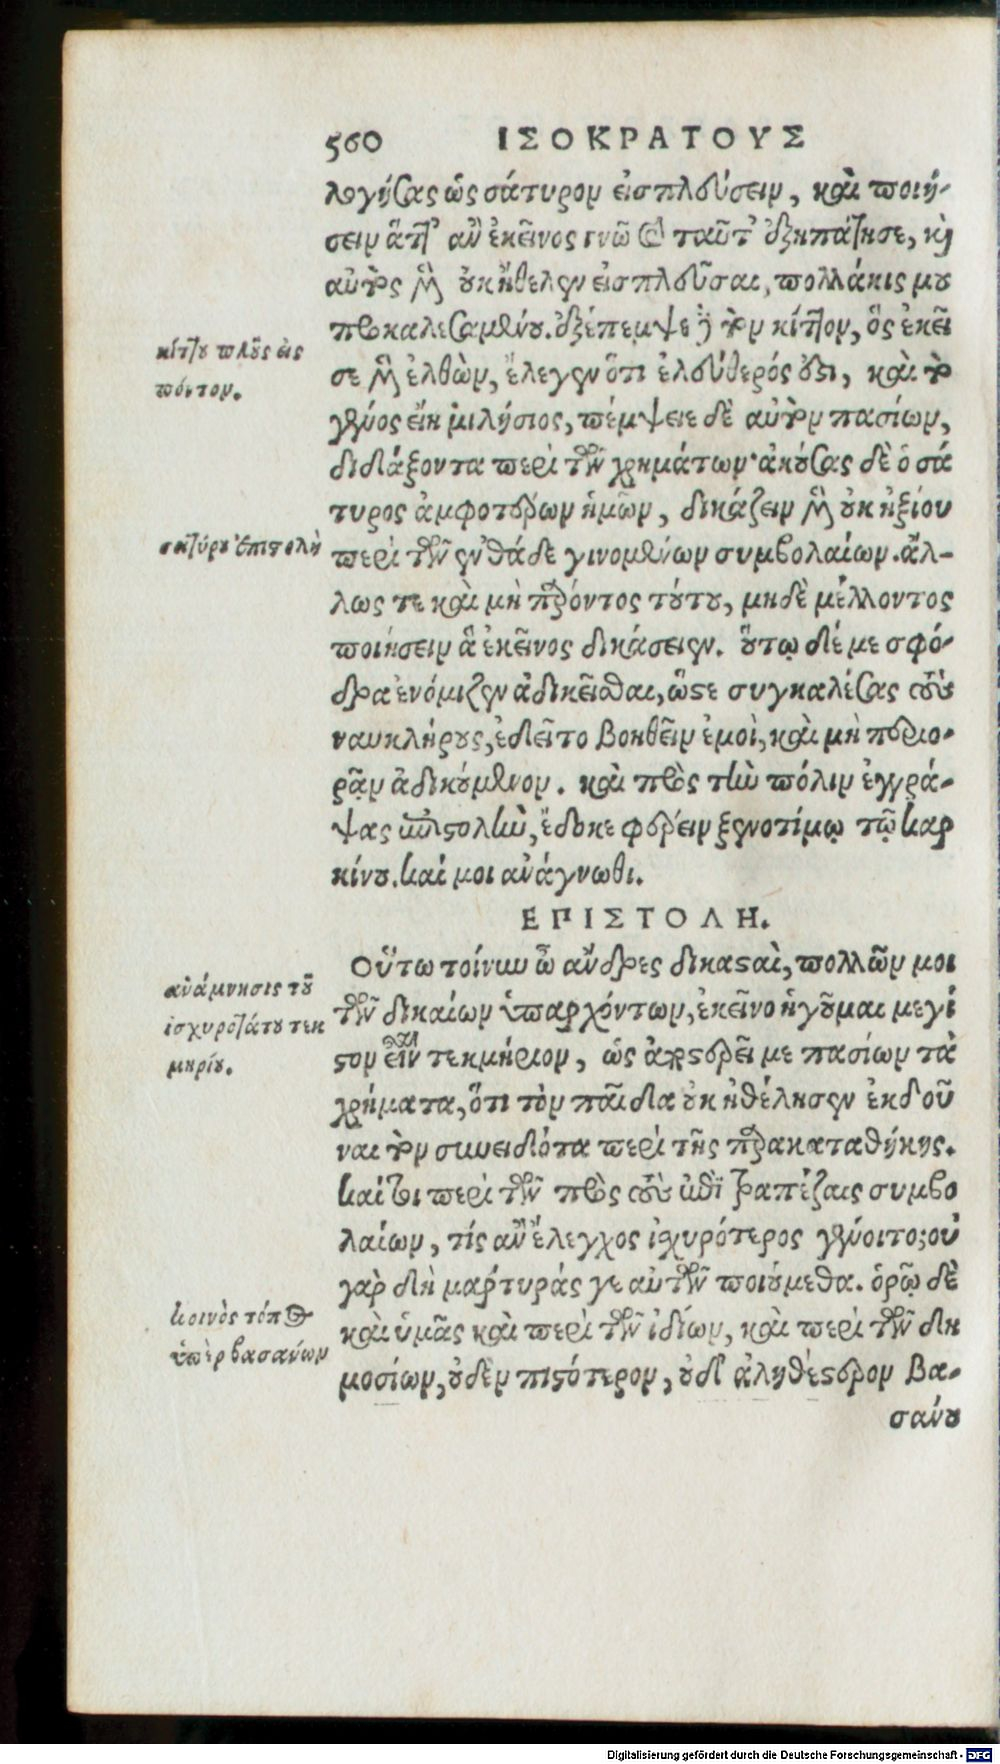 560 ΙΣΟΚΡΑΤΟΥΣ
λογήσας ὡς σάτυρον εἰσπλεύσειν, καὶ ποιή-
σειν ἅττ' ἂν ἐκεῖνος γνῷ ταῦτ' ἐξηπάτησε, καὶ
αὐτὸς μὲν οὐκ ἤθελεν εἰσπλεῦσαι, πολλάκις μου
προκαλεσαμένου. ἐξέπεμψε δὲ τὸν κίττον, ὃς ἐκεῖ
σε μὲν ἐλθὼν, ἔλεγεν ὅτι ἐλεύθερός ἐστι, καὶ τὸ
γένος εἴη μιλήσιος, πέμψειε δὲ αὐτὸν πασίων,
διδάξοντα περὶ τῶν χρημάτων· ἀκούσας δὲ ὁ σά
τυρος ἀμφοτέρων ἡμῶν, δικάζειν μὲν οὐκ ἠξίου
περὶ τῶν ἐνθάδε γινομένων συμβολαίων. ἄλ-
λως τε καὶ μὴ παρόντος τούτου, μηδὲ μέλλοντος
ποιήσειν ἃ ἐκεῖνος δικάσειεν. οὕτω δέ με σφό-
δρα ἐνόμιζεν ἀδικεῖσθαι, ὥστε συγκαλέσας τοὺς
ναυκλήρους, ἐδεῖτο βοηθεῖν ἐμοὶ, καὶ μὴ περιο-
ρᾷν ἀδικούμενον. καὶ πρὸς τὴν πόλιν ἐγγρά-
ψας ἐπιστολὴν, ἔδωκε φέρειν ξενοτίμῳ τῷ καρ
κίνου. καί μοι ἀνάγνωθι.
ΕΠΙΣΤΟΛΗ.
Οὕτω τοίνυν ὦ ἄνδρες δικασταὶ, πολλῶν μοι
τῶν δικαίων ὑπαρχόντων, ἐκεῖνο ἡγοῦμαι μέγι
στον εἶναι τεκμήριον, ὡς ἀποστερεῖ με πασίων τὰ
χρήματα, ὅτι τὸν παῖδα οὐκ ἠθέλησεν ἐκδοῦ
ναι τὸν συνειδότα περὶ τῆς παρακαταθήκης.
καίτοι περὶ τῶν πρὸς τοὺς ἐπὶ τραπέζαις συμβο
λαίων, τίς ἂν ἔλεγχος ἰσχυρότερος γένοιτο; οὐ
γὰρ δὴ μάρτυράς γε αὐτῶν ποιούμεθα. ὁρῶ δὲ
καὶ ὑμᾶς καὶ περὶ τῶν ἰδίων, καὶ περὶ τῶν δη
μοσίων, οὐδὲν πιστότερον, οὐδ' ἀληθέστερον βα-
σάνου
κίττου πλοῦς εἰς
πόντον.
σατύρου ἐπιστολὴ
ἀνάμνησις τοῦ
ἰσχυροτάτου τεκ
μηρίου.
κοινὸς τόπος
ὑπὲρ βασάνων
Digitalisierung gefördert durch die Deutsche Forschungsgemeinschaft - DFG